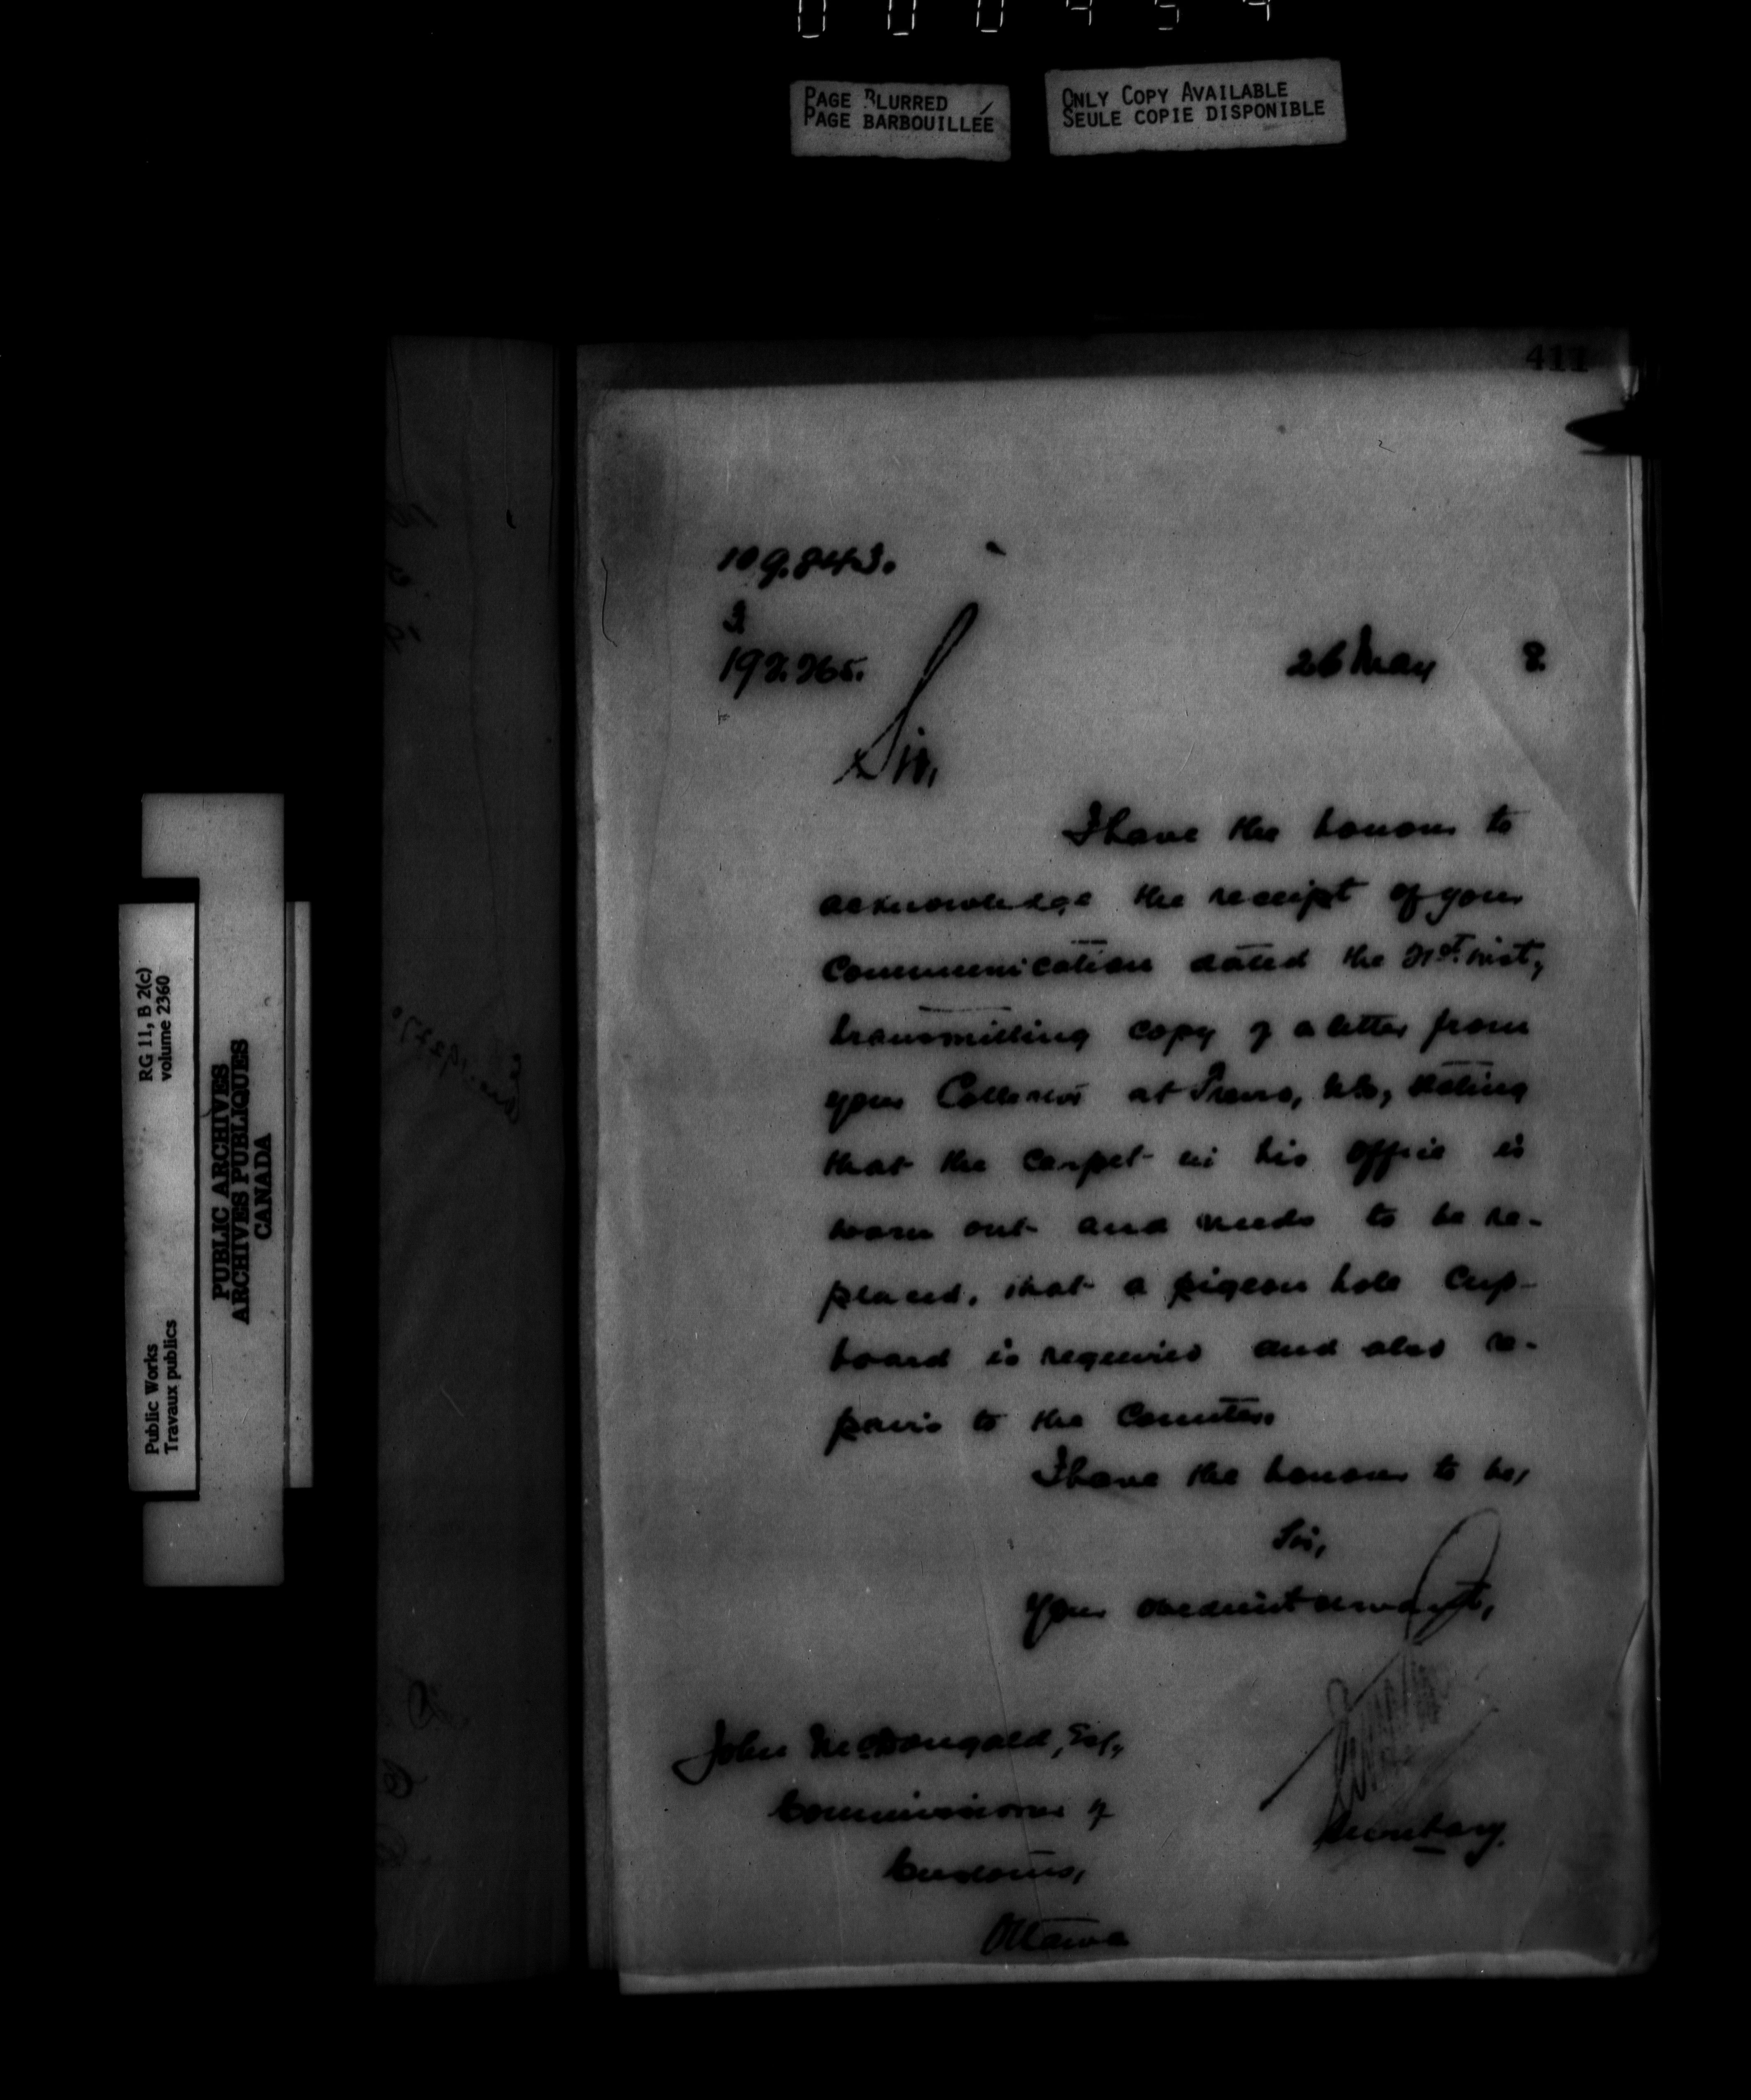 PAGE BLURRED
PAGE BARBOUILLÉE
ONLY COPY AVAILABLE
SEULE COPIE DISPONIBLE
RG 11, B 2(c)
volume 2360
Public Works
Travaux publics
PUBLIC ARCHIVES
ARCHIVES PUBLIQUES
CANADA
411
109.843.
3
192.265.
26 May 8.
Sir,
I have the honour to
acknowledge the receipt of your
Communication dated the 21st inst,
transmitting copy of a letter from
your Collector at Truro, N.S., stating
that the carpet in his office is
worn out and needs to be re-
placed, that a pigeon hole Cup-
board is required and also re-
pairs to the Counter.
I have the honour to be,
Sir,
Your obedient servant,
John McDougald, Esq.,
Commissioner of
Customs,
Ottawa
Secretary.